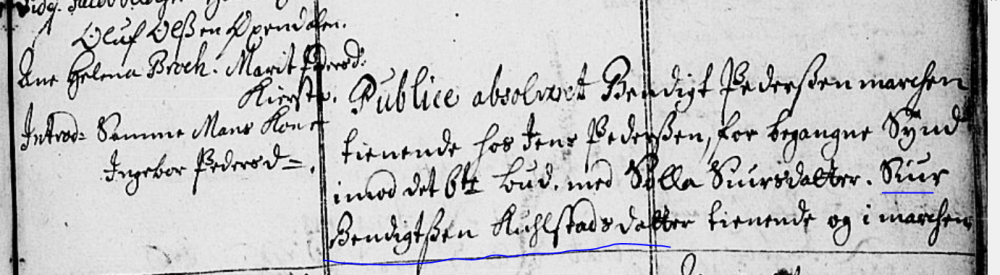 Oluf Olßen Opendalen.
Ane Helena Broch. Marit Pedersd:
Kirst
Introd: Samme Mans Kone
Ingebor Pedersd=.
Publice absolveret Bendigt Pederßen marchen
tienende hos Jens Pederßen, for begangne Synd
imod det 6te bud. med Sılla Siursdatter. Siur
Bendigtßen Kuhlstads datter tienende og i marchen